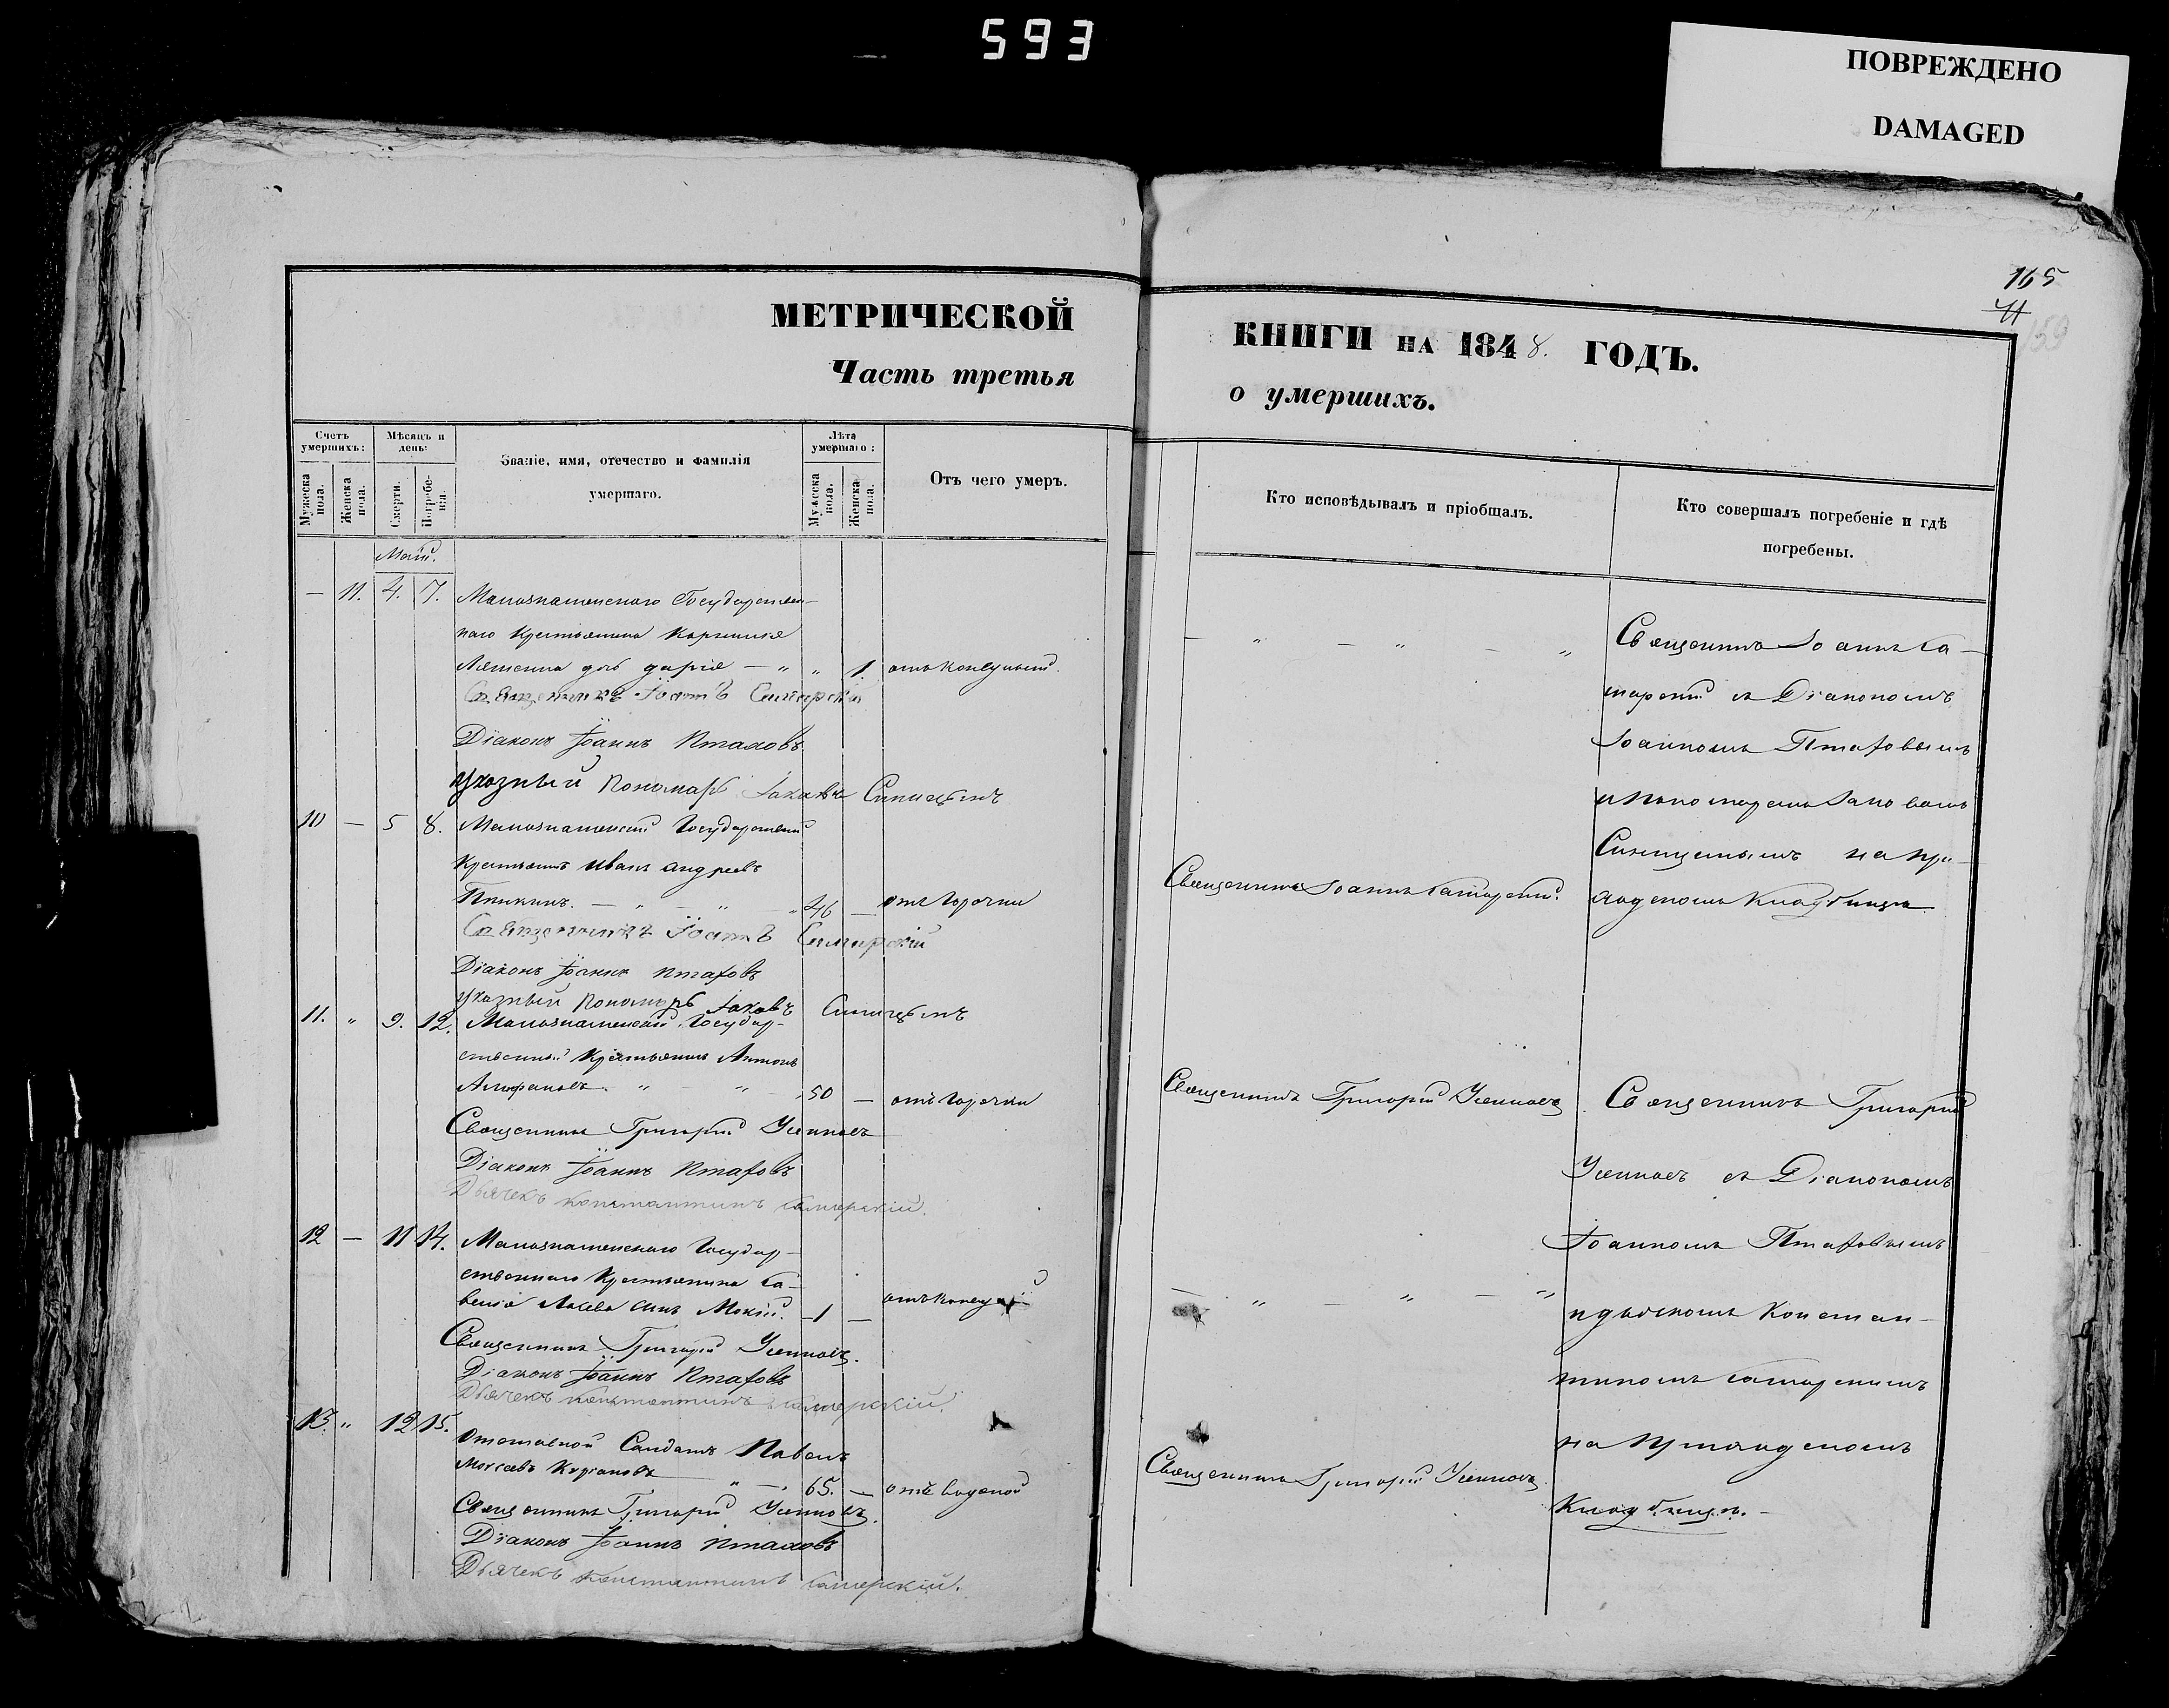 593
ПОВРЕЖДЕНО
DAMAGED
165
41
159
МЕТРИЧЕСКОЙ
Часть третья
Счетъ умершихъ:
Мужеска пола.
Женска пола.
Мѣсяцъ и день:
Смерти.
Погребенія.
Званіе, имя, отечество и фамилія
умершаго.
Лѣта умершаго:
Мужеска пола.
Женска пола.
Отъ чего умеръ.
Май.
— 11. 4. 7. Малознаменскаго Государствен-
наго Крестьянина
дочь Дарія — „ „ 1. отъ конвульсій.
Священникъ Іоаннъ Самарскій
Діаконъ Іоаннъ Птаховъ
Указный Пономарь Іаковъ Синицынъ
10 — 5 8. Малознаменскій Государственный
Крестьянинъ Иванъ Андреевъ
— „ — „ — „ 46 — отъ горячки
Священникъ Іоаннъ Самарскій
Діаконъ Іоаннъ Птаховъ
Указный Пономарь Іаковъ Синицынъ
11. „ 9. 12. Малознаменскій Государ-
ственный Крестьянинъ Антонъ
„ „ 50 — отъ горячки
Священникъ Григорій
Діаконъ Іоаннъ Птаховъ
Дьячекъ Константинъ Самарскій.
12 — 11 14. Малознаменскаго Государ-
ственнаго Крестьянина Са-
сынъ Мокій. — 1 — отъ конвульсій
Священникъ Григорій
Діаконъ Іоаннъ Птаховъ
Дьячекъ Константинъ Самарскій.
13. „ 12 15. Отставной Солдатъ Павелъ
Моисеевъ „ — „ 65. — отъ водяной
Священникъ Григорій
Діаконъ Іоаннъ Птаховъ
Дьячекъ Константинъ Самарскій.
КНИГИ НА 1848. ГОДЪ.
о умершихъ.
Кто исповѣдывалъ и пріобщалъ.
Кто совершалъ погребеніе и гдѣ
погребены.
— „ — „ — „
Священникъ Іоаннъ Са-
марскій съ Діакономъ
Іоанномъ Птаховымъ
и Пономаремъ Іаковомъ
Синицынымъ на при-
ходскомъ кладбищѣ.
Священникъ Іоаннъ Самарскій.
Священникъ Григорій
Священникъ Григорій
съ Діакономъ
Іоанномъ Птаховымъ
и дьячкомъ Констан-
тиномъ Самарскимъ
на приходскомъ
кладбищѣ. —
— „ — „ — „
Священникъ Григорій